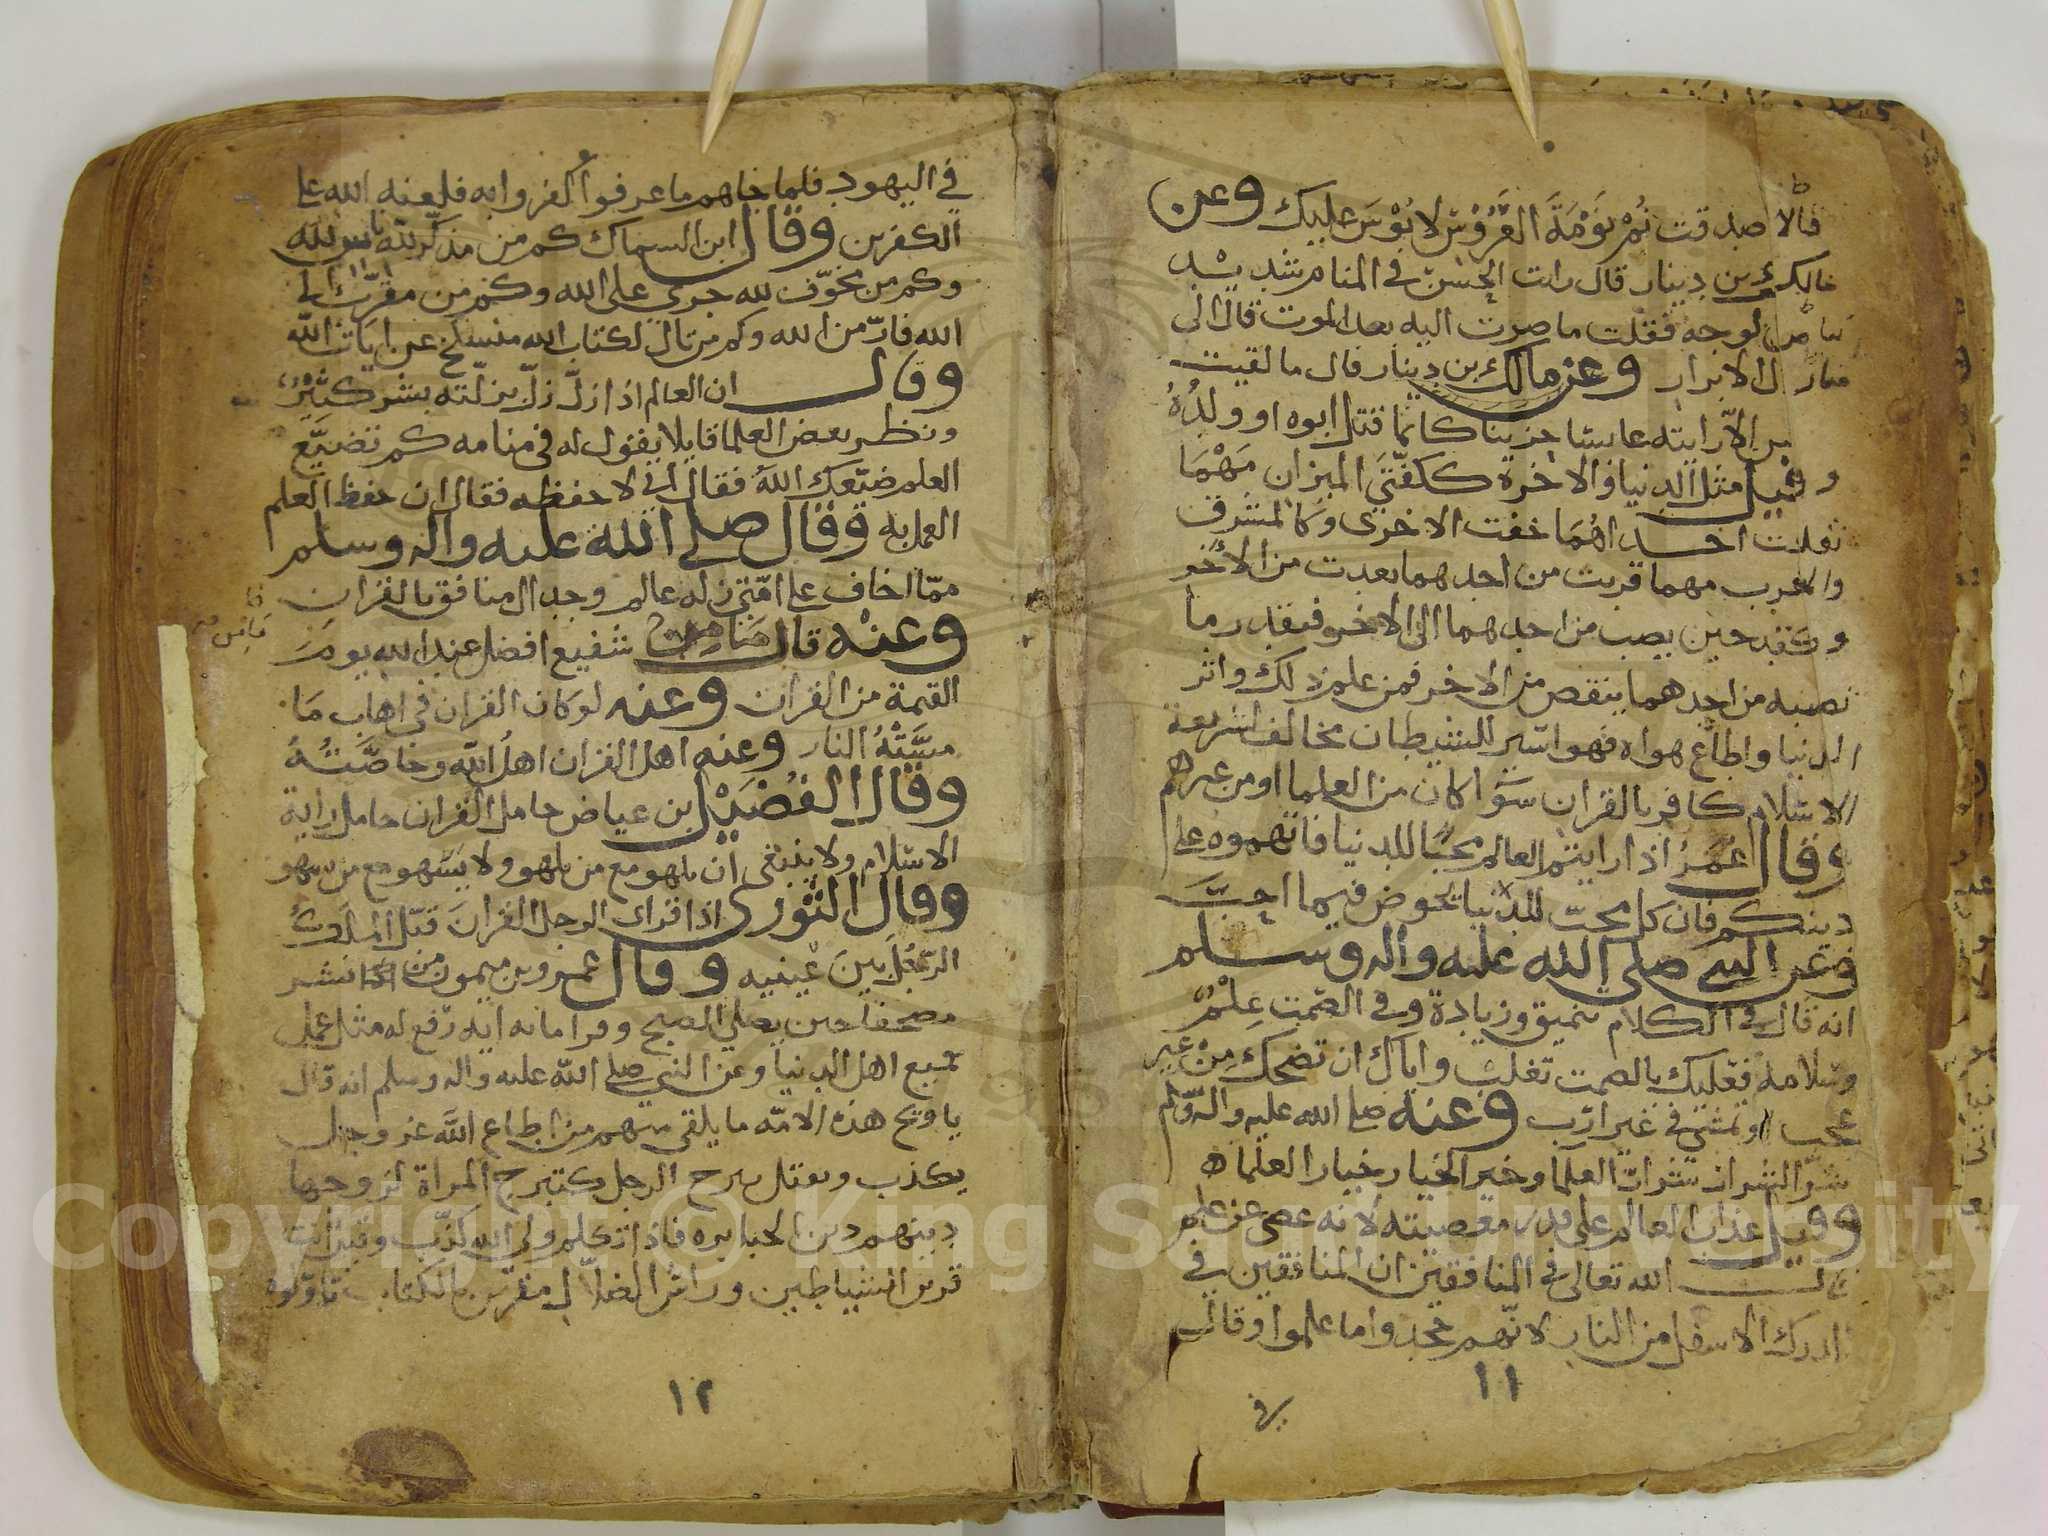 قالا صدقت نم نَوْمَةَ العَرُوْسْ لا بُوْسَ عليك وعن
مالك بن دينار قال رات الحسن في المنام شديد
بياض لوجه فقلت ما صرت اليه بعد الموت قال الى
منازل الابرار وعن مالك بن دينار قال ما لقيت
الا رايته عابسا حزينا كانما قتل ابوه او ولدُهُ
وقيل مثل الدنيا والاخرة ككفّتَي الميزان مَهْمَا
ثقلت احداهُمَا خفت الاخرى وكالمشرق
والمغرب مهما قربت من احدهما بعدت من الاخر
وكقدحين يصب من احدهما الى الاخر فبقدر ما
تصبه من احدهما ينقص من الاخر فمن علم ذلك واثر
الدنيا واطاع هواه فهو اسير للشيطان مخالف لشريعة
الاسلام كافر بالقران سوا كان من العلما او من غيرهم
وقال عُمَرُ اذا رايتم العالم محبًا للدنيا فاتهموه على
دينكم فان كل محبّ للدنيا يخوض فيما احبَّ
وعن النبي صلى الله عليه واله وسلم
انه قال في الكلام تنميق وزيادة وفي الصمت عِلْمٌ
وسلامة فعليك بالصمت تغلب واياك ان تضحك مِنْ غير
عجب او تمشي في غير ارب وعنه صلى الله عليه واله وسلم
شرّ الشرار شرار العلما وخير الخيار خيار العلما ه
وقيل عذاب العالم على قدر معصيته لانه عصى عن علم
قال الله تعالى في المنافقين ان المنافقين في
الدرك الاسفل من النار لانّهم جحدوا ما علموا وقال
١١
في
في اليهود فلما جاهم ما عرفوا كفروا به فلعنة الله على
الكفرين وقال ابن السماك كم من مذكّر لله ناس لله
وكم من مخوّف لله جرى على الله وكم من مقرّب الى
الله فارّ من الله وكم من تال لكتاب الله منسلخ عن ايات الله
وقال ان العالم اذا زلّ زلّ بزلّته بشر كثيْرٌ
ونظر بعض العلما قايلا يقول له في منامه كم تضيّع
العلم ضيّعك اللهُ فقال اني لا حفظه فقال ان حفظ العلم
العمل به وقال صلى الله عليه واله وسلم
ممّا اخاف على امّتي زله عالم وجدال منافق بالقران
وعنْه قال ما من شفيع افضل عند الله يومَ
القيمة من القران وعنه لو كان القران في اهاب مَا
مسَّتْهُ النار وعنه اهل القران اهلُ اللّه وخاصَّتُهُ
وقال الفُضَيْل ابن عياض حامل القران حامل راية
الاسلام ولا ينبغي ان يلهو مع من يلهو ولا يَسْهو مع من يسهو
وقال الثَّوْرى اذا قرات الرجل القرانَ قبّل الملَكُ
الرّجُلَ بين عينيه وقال عمرو بن ميمون من نشر
مصحفا حين يصلي الصبح وقرا ماىه ايه رفع له مثل عمل
جميع اهل الدنيا وعن النبي صلى الله عليه واله وسلم انه قال
يا ويح هذه الامّه ما يلقى منهم من اطاع اللَّه عز وجل
يكذب ويقتل يبرج الرجل كتبرج المراة لزوجها
دينهم دين الجبابره فاذا تكلم ولي الله كذّب وقيل انت
قرين الشياطين وراسُ الضلاّل مفرّىن بالكتاب تاوّلوه
١٢